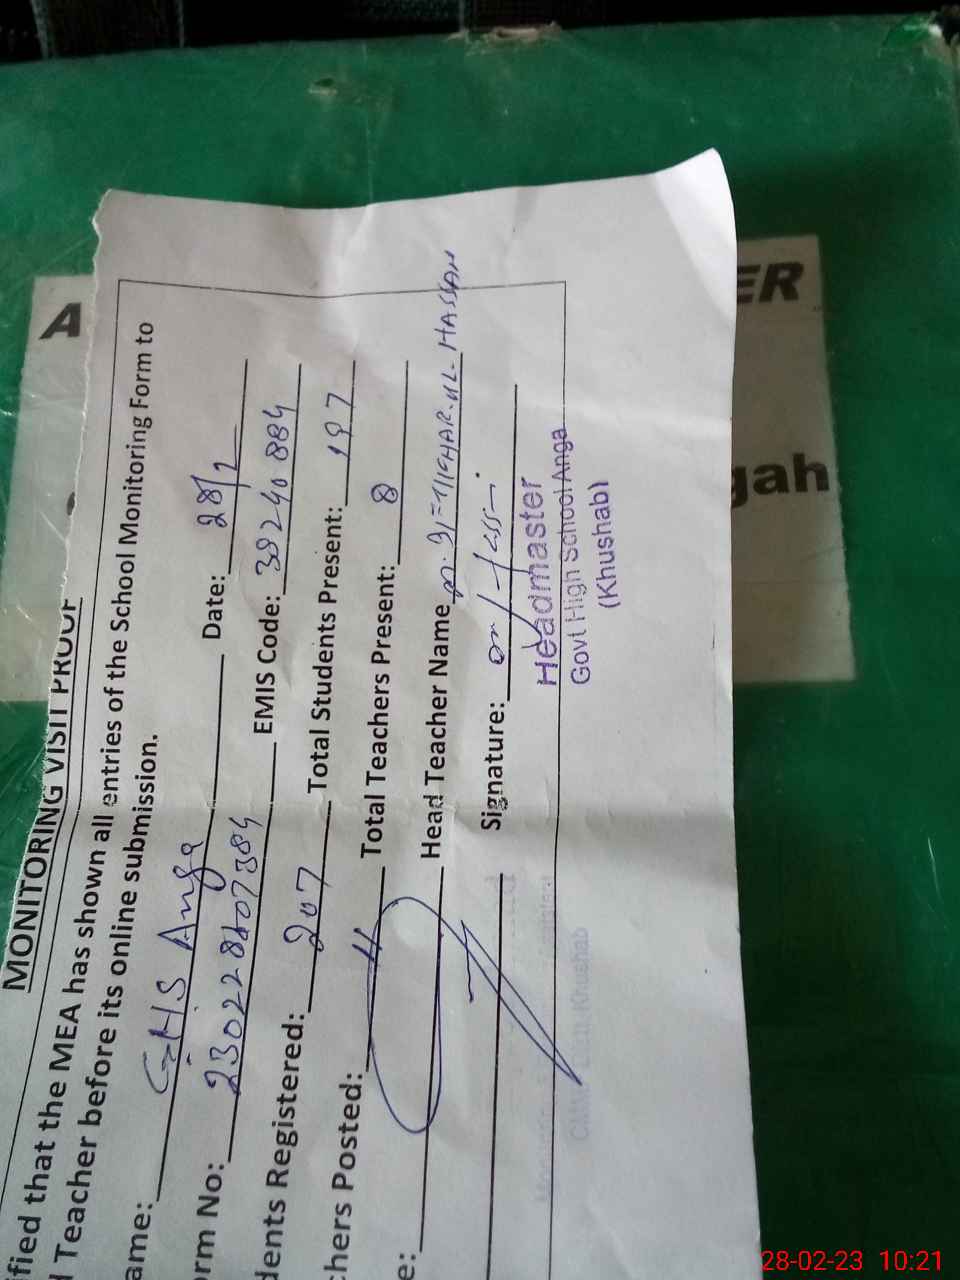 MONITORING VISIT PROOF
ified that the MEA has shown all entries of the School Monitoring Form to
d Teacher before its online submission.
ame: GHS Anga Date: 28/2
orm No: 230228107384 EMIS Code: 39240884
dents Registered: 207 Total Students Present: 197
chers Posted: 11 Total Teachers Present: 8
e: Head Teacher Name HASSAN
Signature:
Headmaster
Govt High School Anga
(Khushab)
Khushab
A
ER
gah
28-02-23 10:21